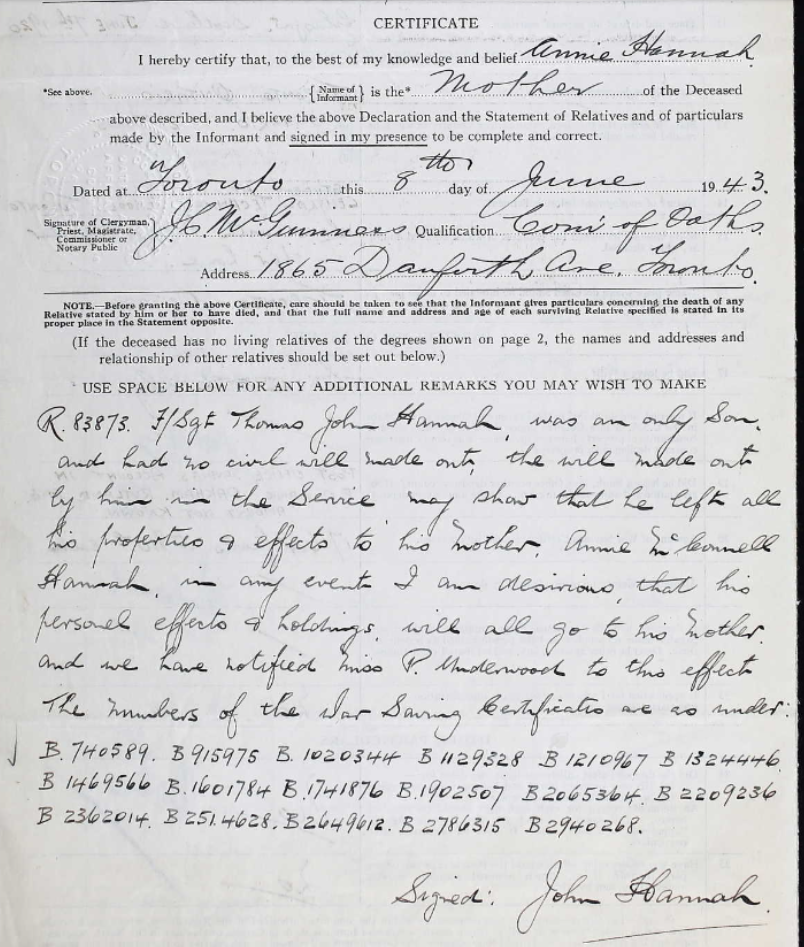 CERTIFICATE
I hereby certify that, to the best of my knowledge and belief Annie Hannah
*See above. {Name of Informant} is the* Mother of the Deceased
above described, and I believe the above Declaration and the Statement of Relatives and of particulars
made by the Informant and signed in my presence to be complete and correct.
Dated at Toronto this 8th day of June 1943.
Signature of Clergyman, Priest, Magistrate, Commissioner or Notary Public J.C. McGuinness Qualification Com of Oaths.
Address 1865 Danforth Ave. Toronto.
NOTE.—Before granting the above Certificate, care should be taken to see that the Informant gives particulars concerning the death of any
Relative stated by him or her to have died, and that the full name and address and age of each surviving Relative specified is stated in its
proper place in the Statement opposite.
(If the deceased has no living relatives of the degrees shown on page 2, the names and addresses and
relationship of other relatives should be set out below.)
USE SPACE BELOW FOR ANY ADDITIONAL REMARKS YOU MAY WISH TO MAKE
R. 83873. F/Sgt Thomas John Hannah, was an only Son,
and had no civil will made out, the will made out
by him in the Service may show that he left all
his properties & effects to his Mother, Annie McConnell
Hannah, in any event I am desirious, that his
personel effects & holdings, will all go to his Mother.
and we have notified Miss P. Underwood to this effect
The numbers of the War Saving Certificates are as under:
B. 740589. B 915975 B. 1020344 B 1129328 B 1210967 B 1324446.
B 1469566 B. 1601784 B. 1741876 B. 1902507 B 2065364. B 2209236
B 2362014. B 2514628. B 2649612. B 2786315 B 2940268.
Signed: John Hannah.